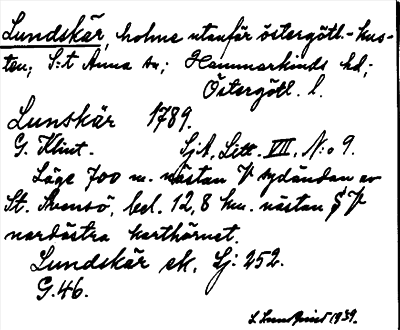 Lundskär, holme utanför östergötl.-kus-
ten; S:t Anna sn; Hammarkinds hd;
Östergötl. l.
Lunskär 1789.
G. Klint. Sjk. Litt. VII, N:o 9.
Läge 700 m. nästan V sydändan av
St. Arensö, bel. 12,8 km. nästan V
nordöstra karthörnet.
Lundskär ek. Lj: 252.
G.46.
1939.